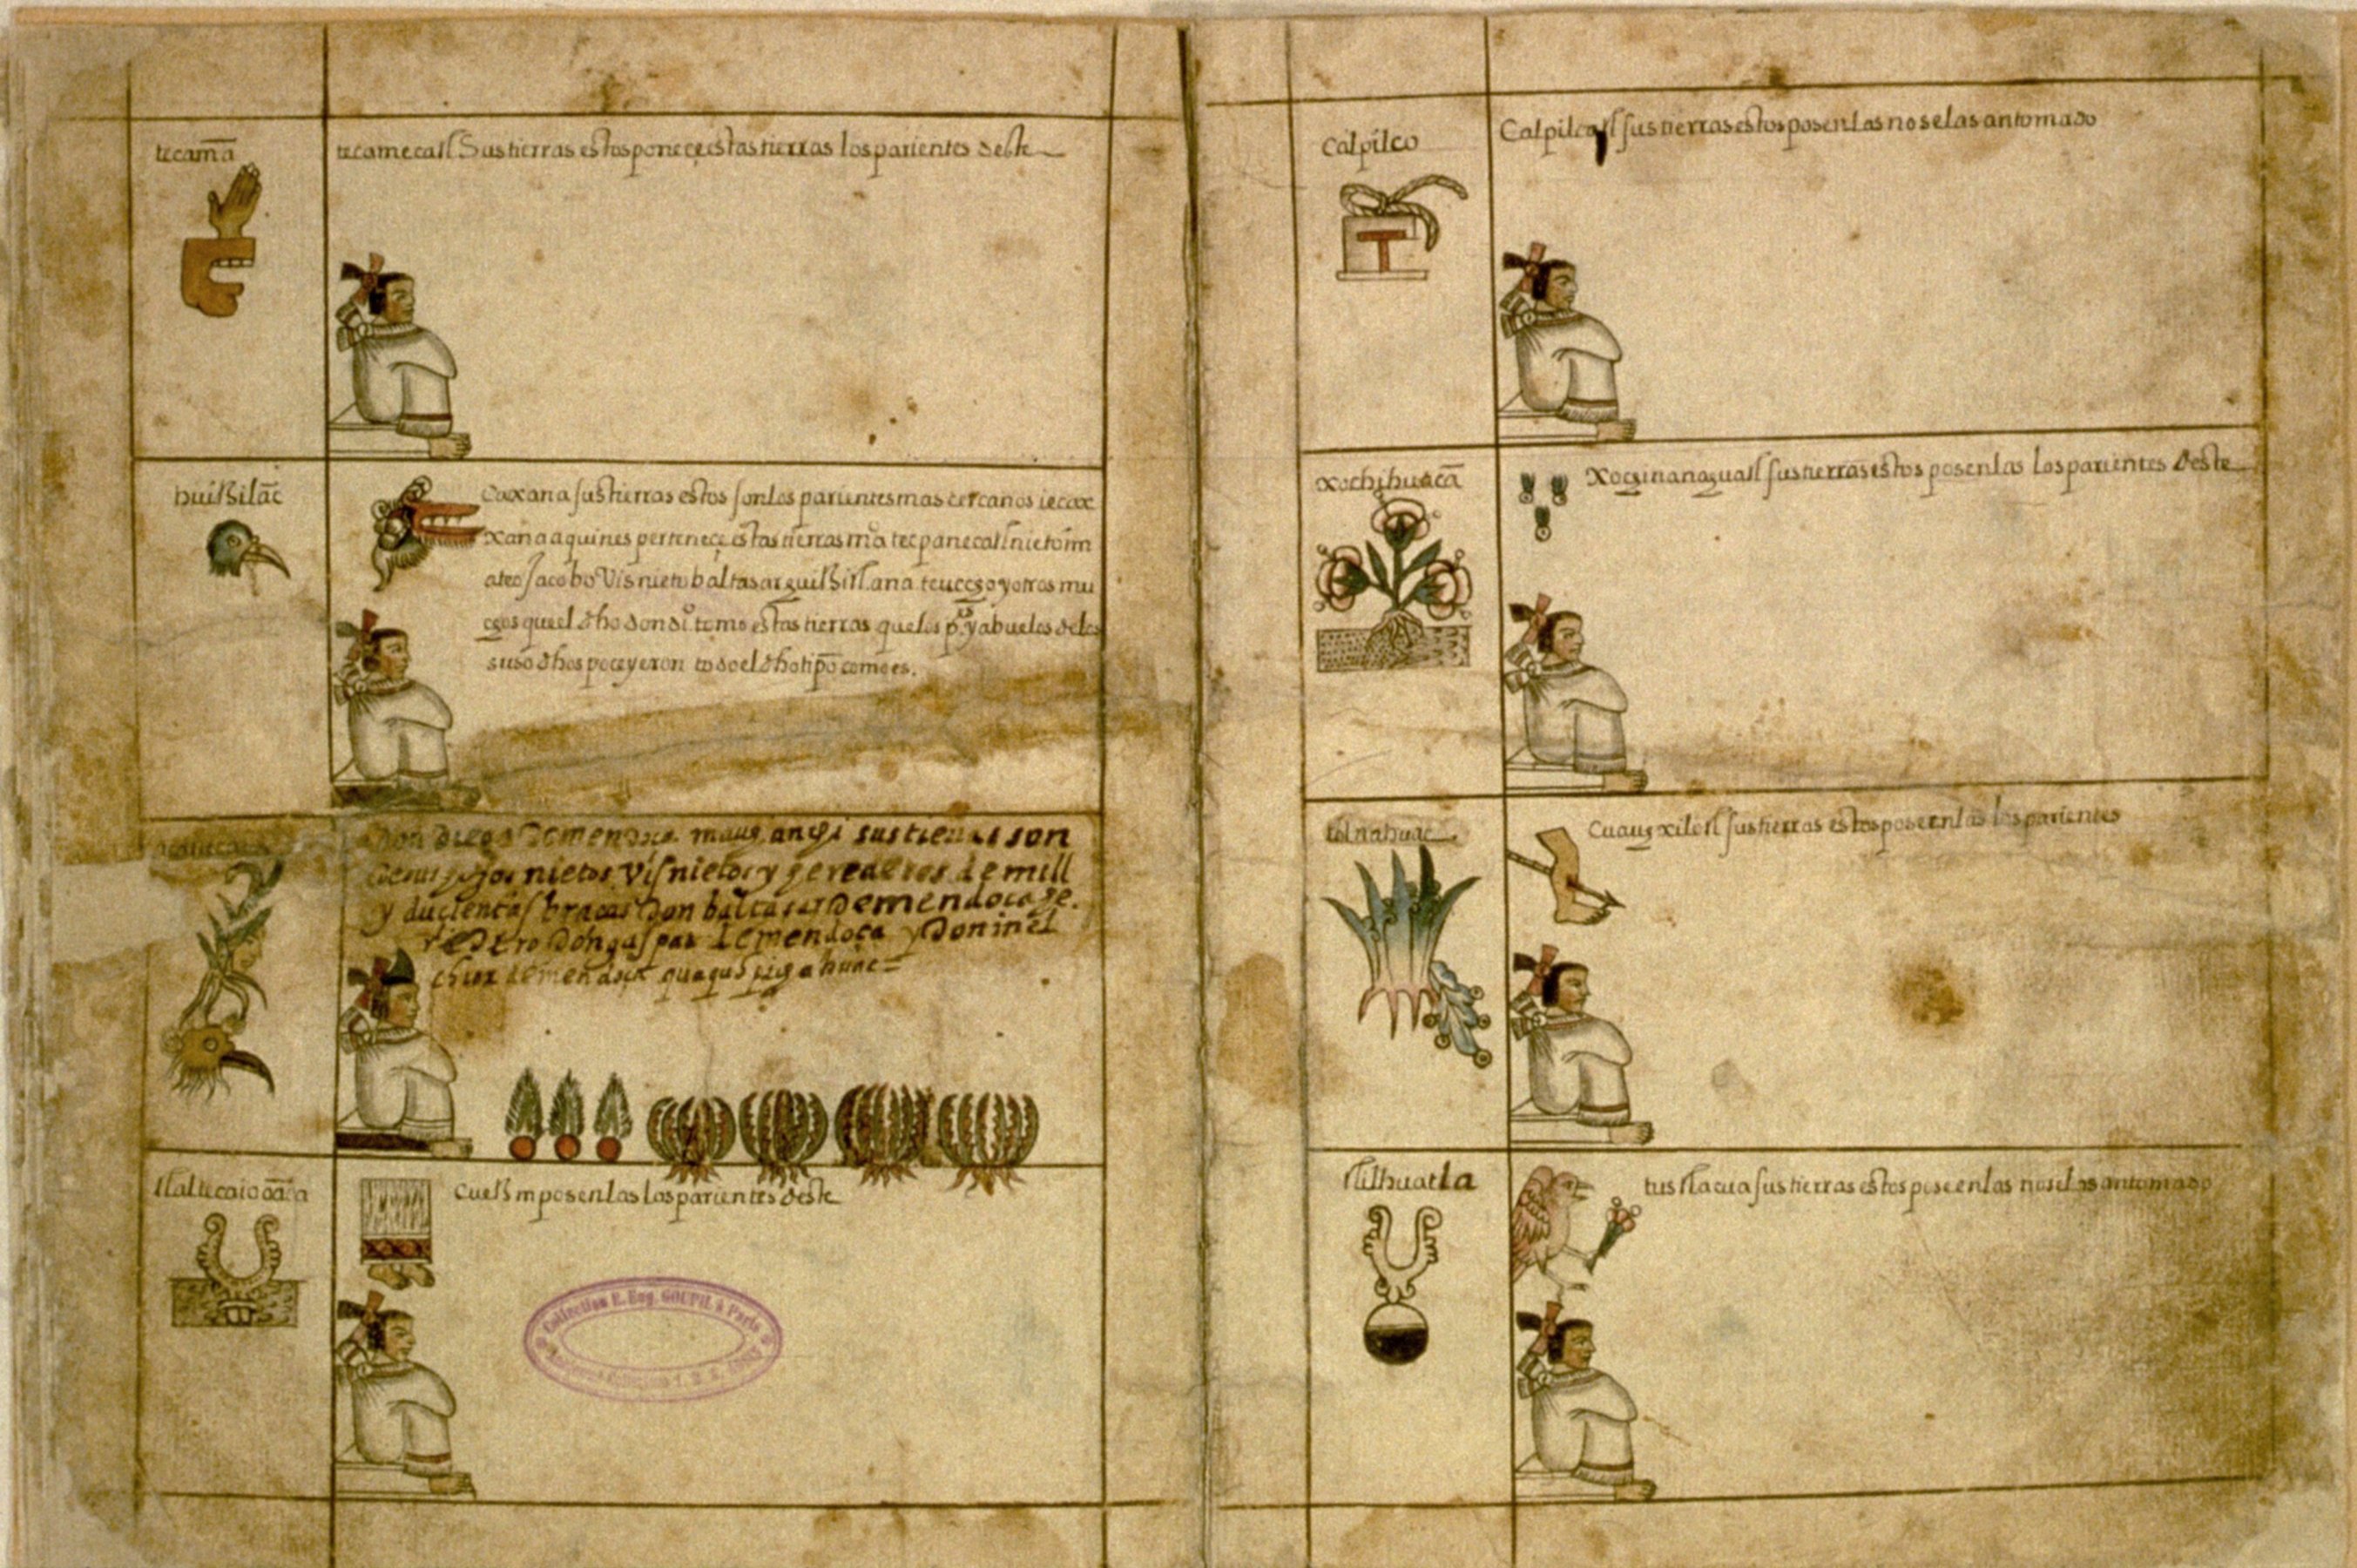 tecamā
tecamecatl Sus tierras estos poneçe estas tierras los parientes deste
huitzilāc
Caxana sus tierras estos son los parientes mas cercanos
xana a quines perteneçe estas tierras mõ tecpanecatl nieto
ateo Jacobo Visnieto baltasar teuccgo y otros mu
cgos quel dho don dio tomo estas tierras que los ps y abuelos delos
suso dhos poceyeron todo el dho tipõ como es.
Don Diego Demendoça sus tierras son
nietos Visnietos y de mill
y duclentas braças Don baltasar Demendoça
Don gaspar demendoça y Don
chior demendoça
posenlas los parientes deste
Collection E. Eug. GOUPIL à Paris
Calpilco
Calpilcatl sus tierras estos posenlas no se las an tomado
xochihuacā
Xocginanaguatl sus tierras estos posenlas los parientes deste
tolnahuac
Cuaugxilotl sus tierras estos poseenlas los parientes
tlilhuatla
tustlacua sus tierras estos poseenlas no selas an tomado